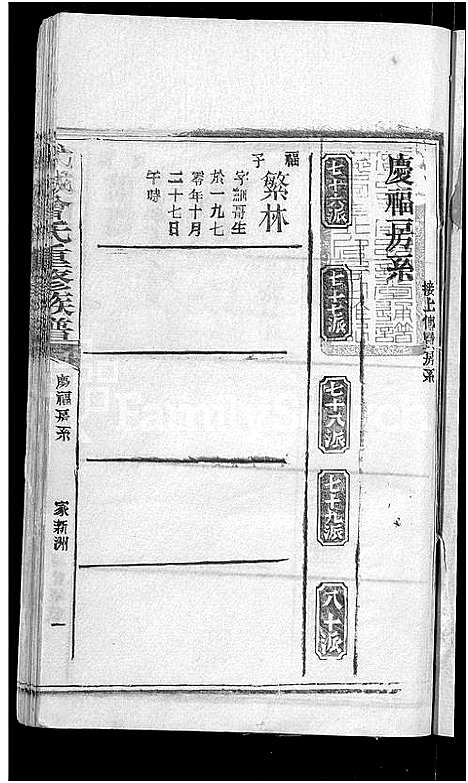 慶福房系
接上傳
房系
七十六派
七十七派
七十八派
七十九派
八十派
福
子
繁林
字
哥生
於一九七
零年十月
二十七日
午時
武城曾氏重修族譜
慶福房系
家新洲
一